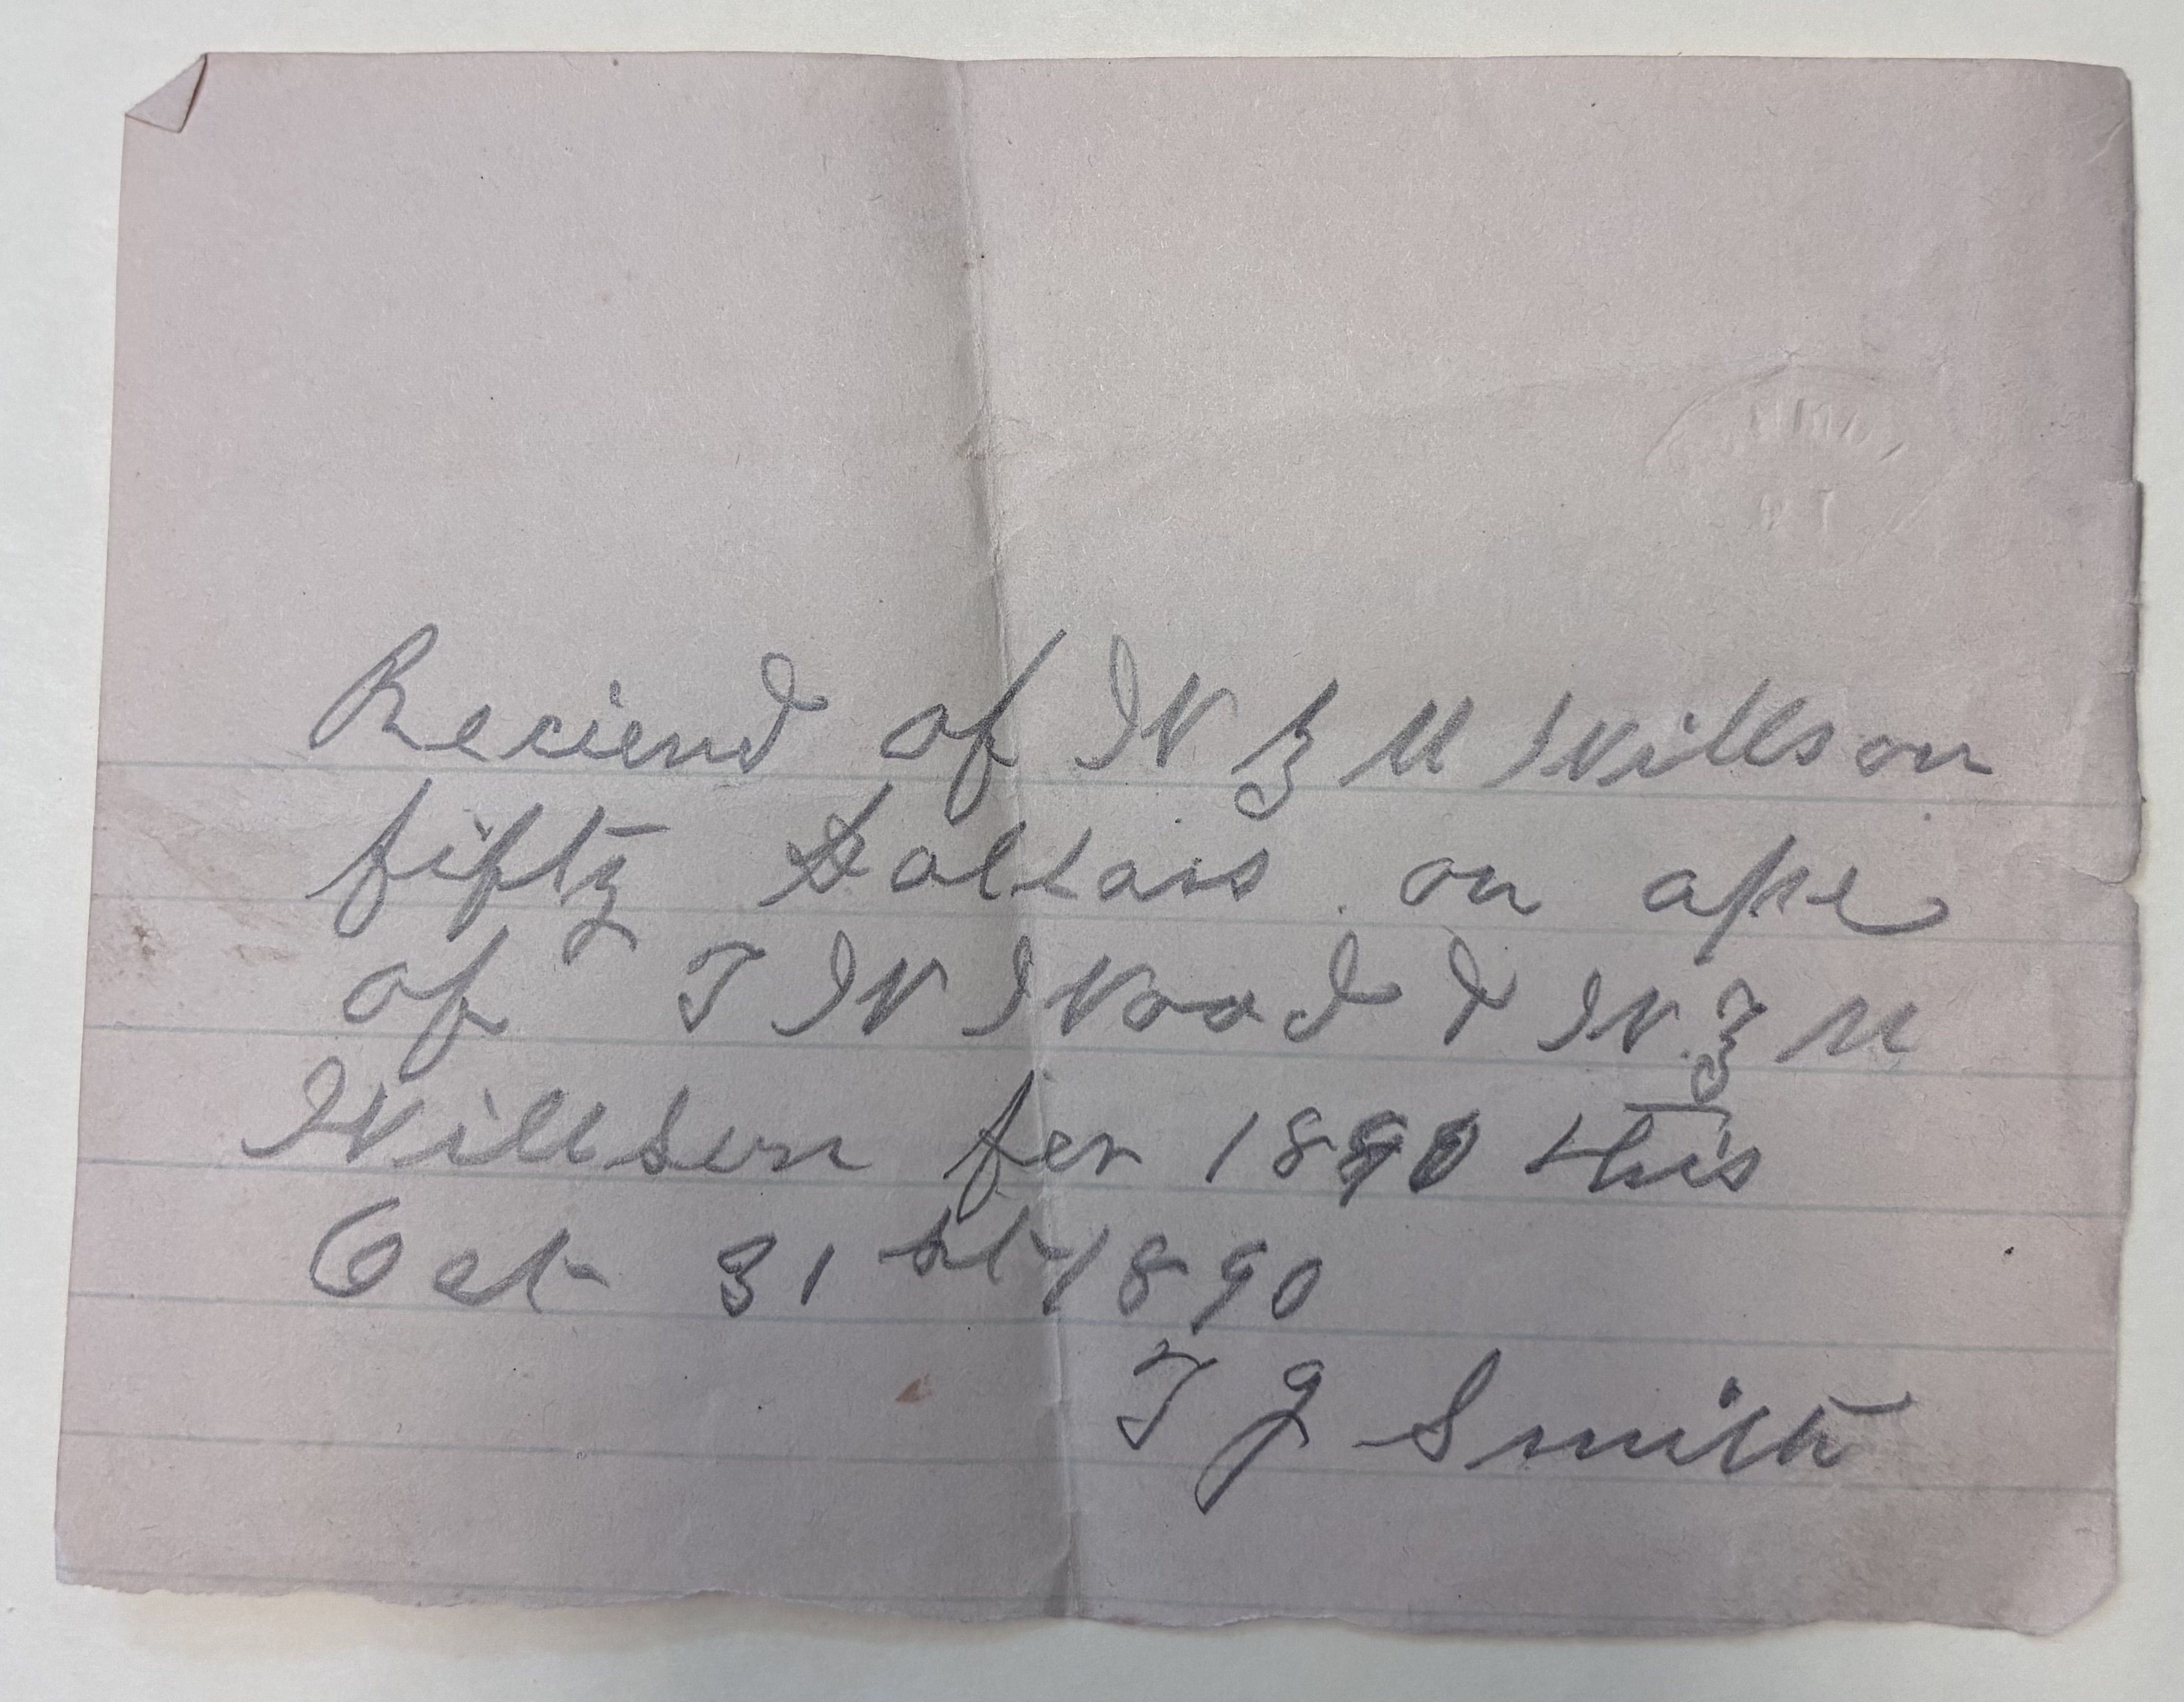 Recievd of W Z M Willson
fifty Dollars on ape
of T W Wood & W Z M
Willson for 1890 this
Oct 31 st 1890
T J Smith